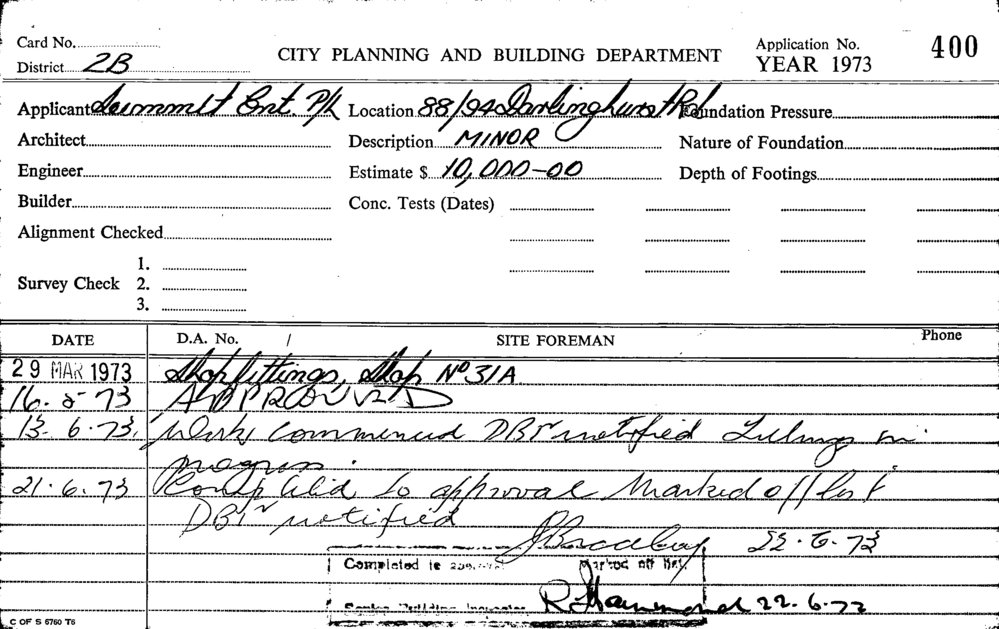 Card No.
CITY PLANNING AND BUILDING DEPARTMENT
Application No. 400
District 2B
YEAR 1973
Applicant Summit Ent. P/L Location 88/94 Darlinghurst Rd Foundation Pressure
Architect Description MINOR Nature of Foundation
Engineer Estimate $ 10,000-00 Depth of Footings
Builder Conc. Tests (Dates)
Alignment Checked
1.
Survey Check 2.
3.
DATE D.A. No. / SITE FOREMAN Phone
29 MAR 1973 Shopfittings, Shop No 31A
16. 5 73 APPROVED
13. 6. 73. Works commenced DBT notified in
progress.
21. 6. 73 Completed to approval Marked off list
DBT notified
22. 6. 73
Completed to Marked off list
Senior Building Inspector R. Hammond 22. 6. 73
C OF S 5760 T6